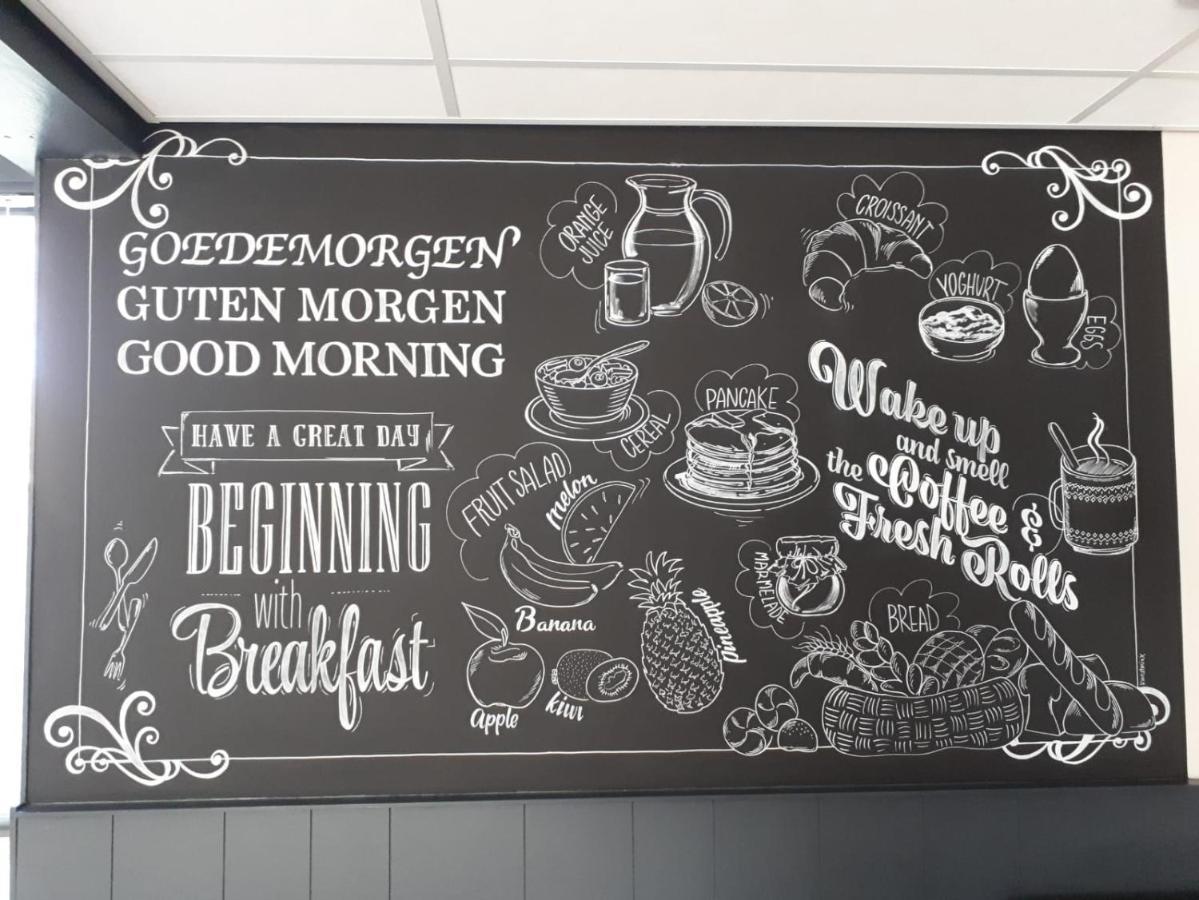 GOEDEMORGEN
GUTEN MORGEN
GOOD MORNING
HAVE A GREAT DAY
BEGINNING
with
Breakfast
ORANGE
JUICE
CEREAL
PANCAKE
FRUIT SALAD
melon
Banana
Apple
kiwi
pineapple
CROISSANT
YOGHURT
EGGS
Wake up
and smell
the Coffee &
Fresh Rolls
MARMELADE
BREAD